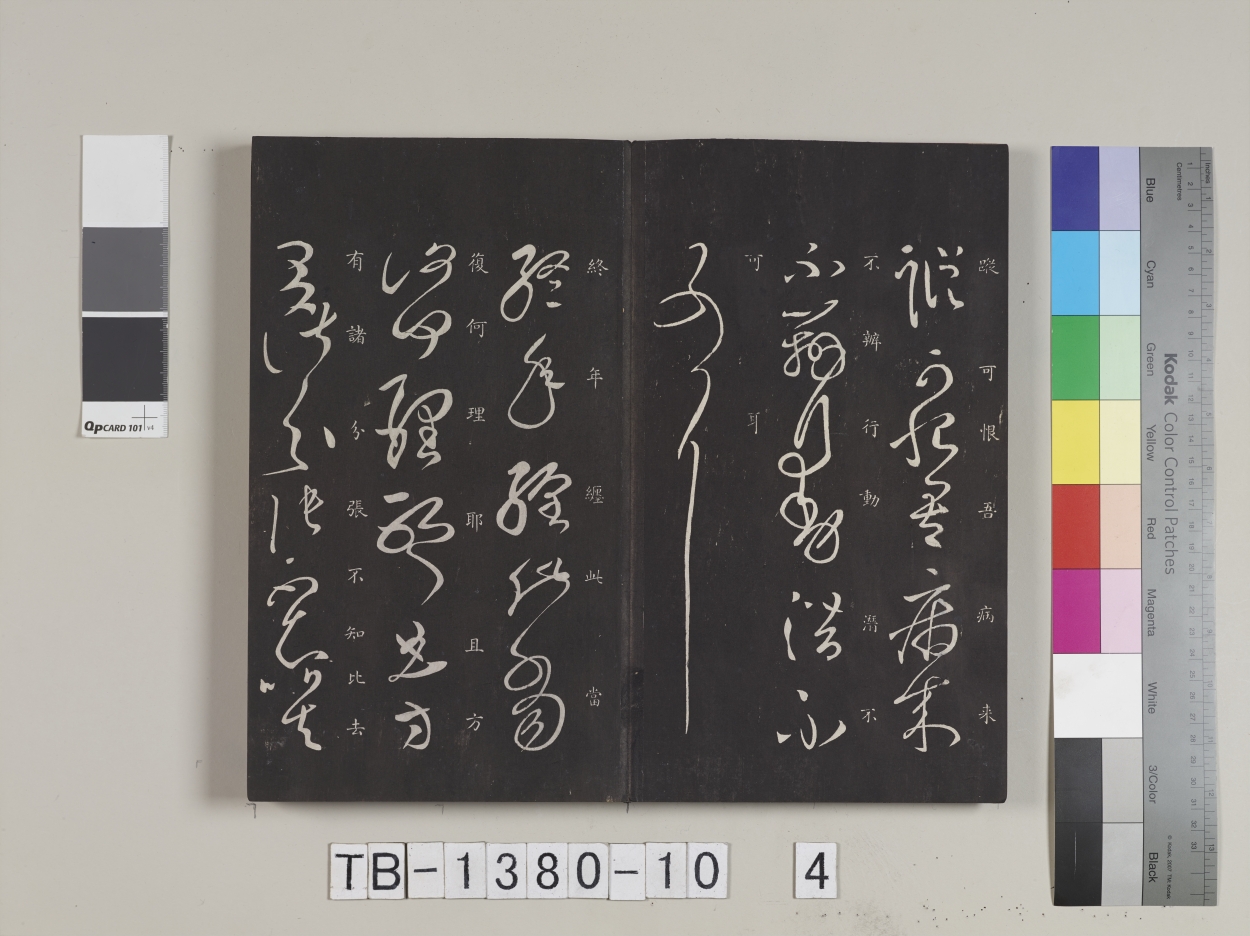 蹤 可 恨 吾 病 来
不 辨 行 動 潛 不
可 耳
終 年 纏 此 當
復 何 理 耶 且 方
有 諸 分 張 不 知 比 去
TB-1380-10 4
QPCARD 101 v4
Kodak Color Control Patches
Blue Cyan Green Yellow Red Magenta White 3/Color Black
Inches
Centimetres